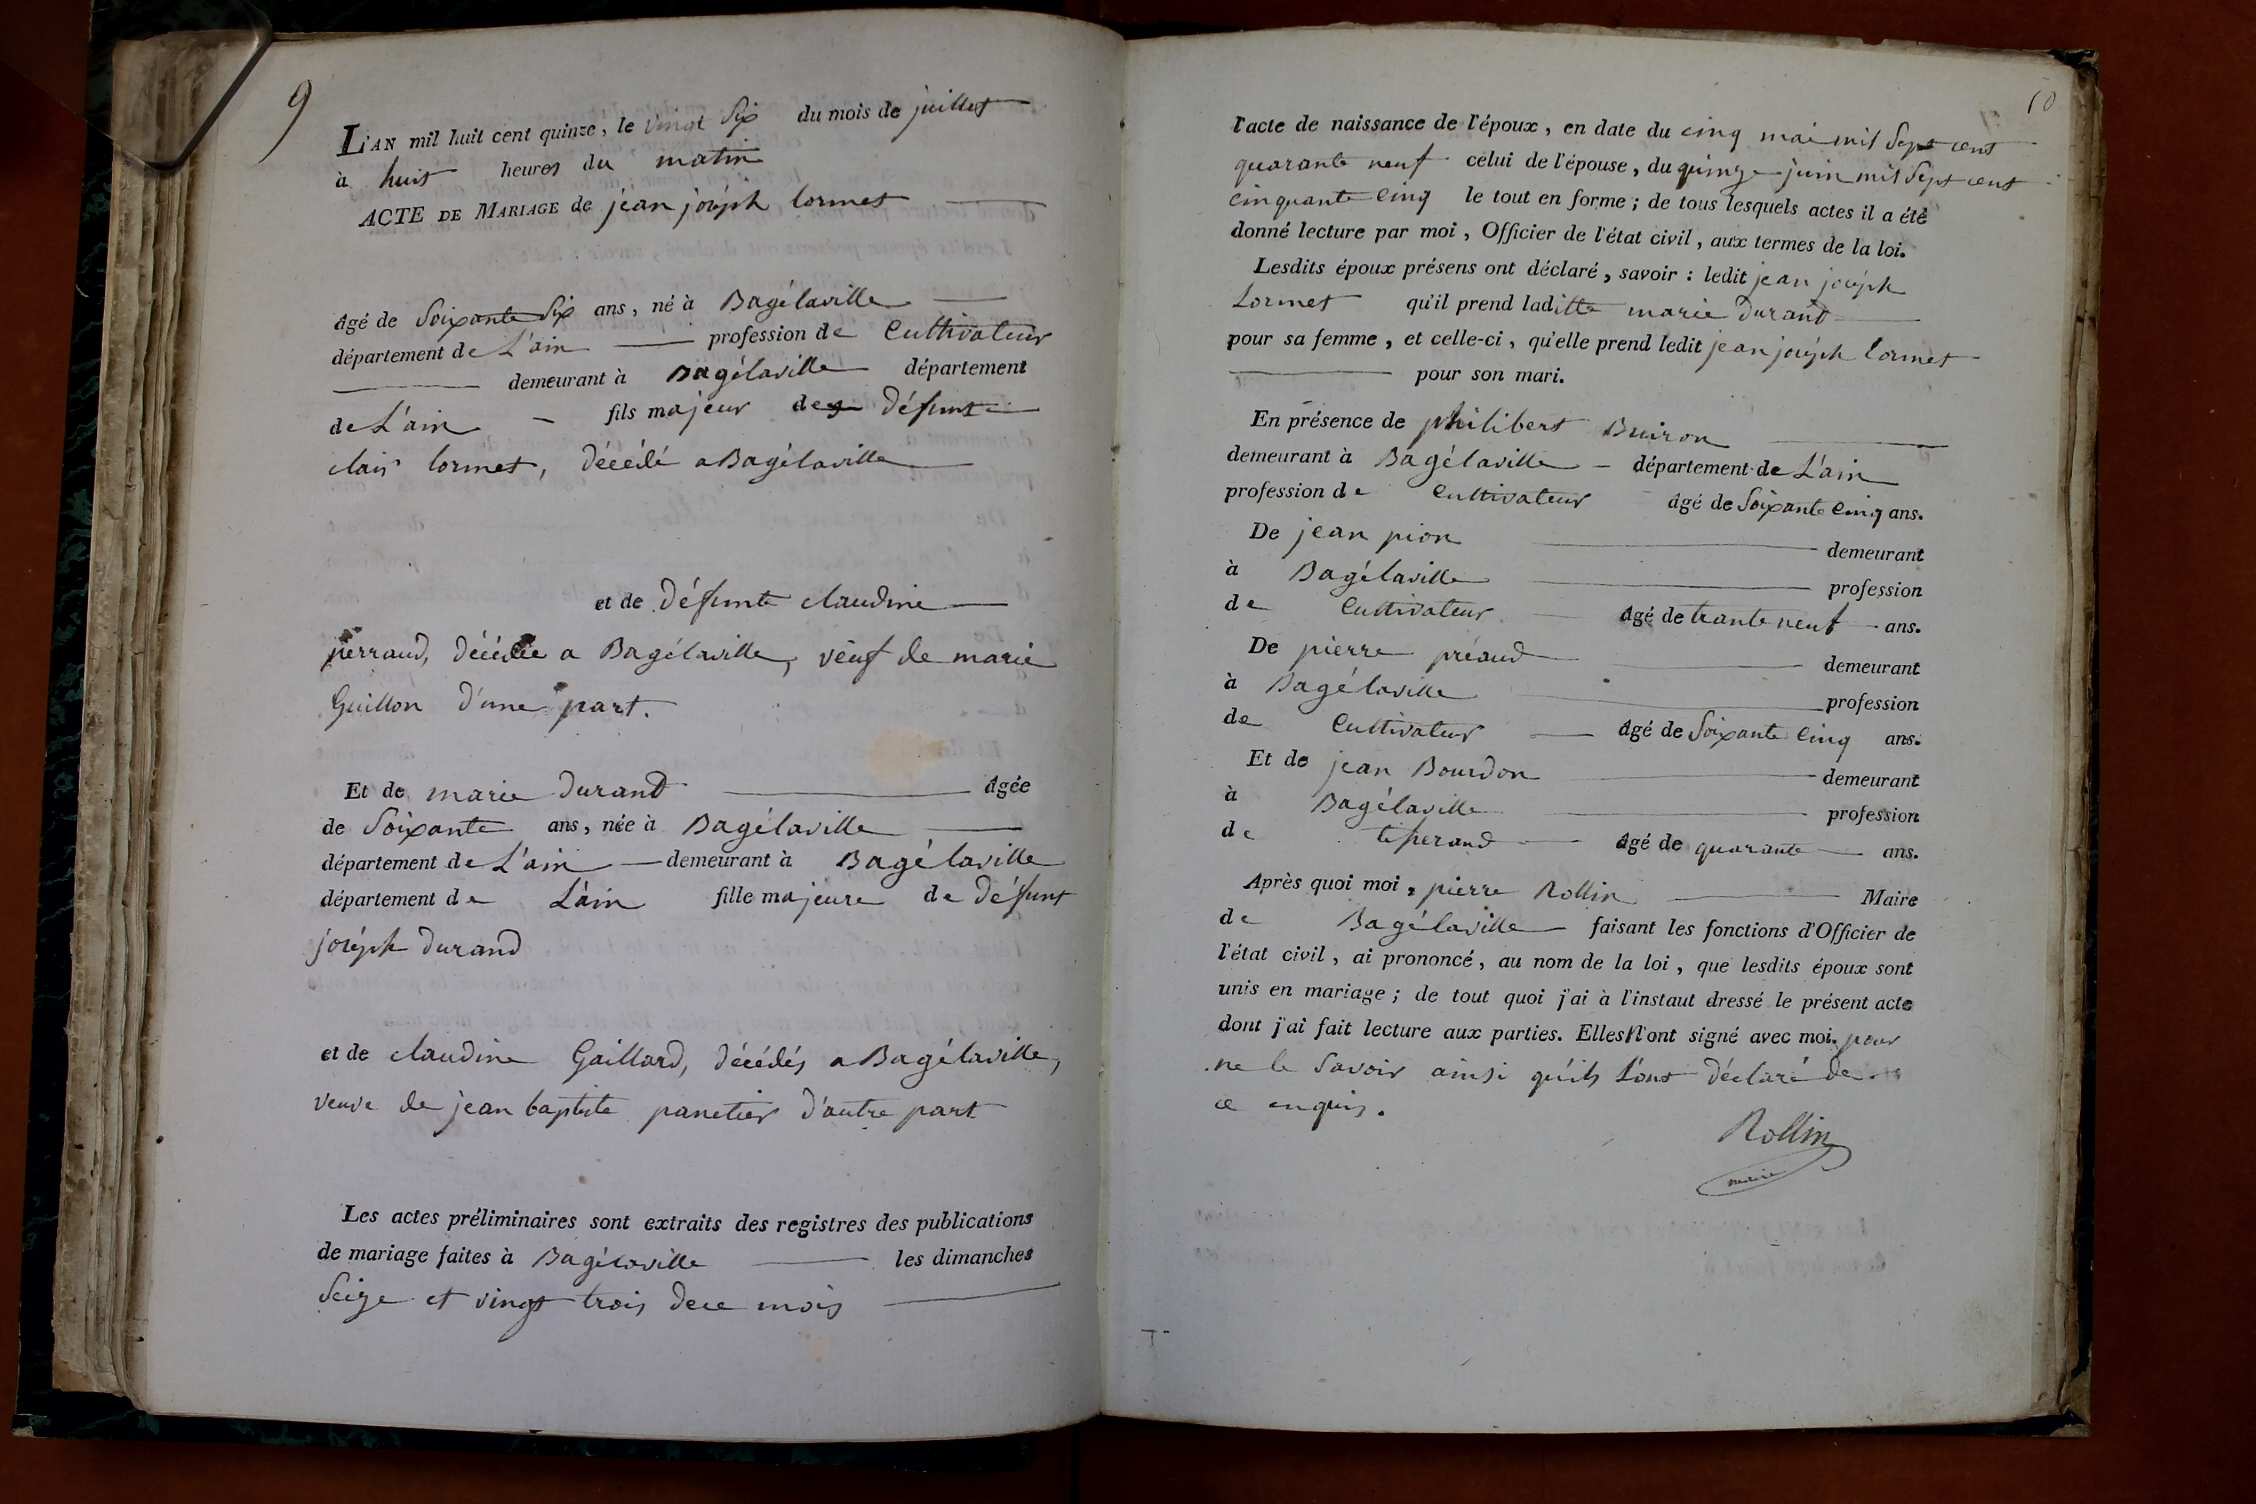 9
L'AN mil huit cent quinze, le vingt Six du mois de juillet
à huit heures du matin
ACTE DE MARIAGE de jean joséph lormet
âgé de Soixante Six ans, né à Bagélaville
département de L'ain profession de Cultivateur
demeurant à Bagélaville département
de L'ain fils majeur de défunt
clair lormet, décédé a Bagélaville
et de défunte claudine
perraud, décédée a Bagélaville, veuf de marie
Guillon d'une part.
Et de marie durand âgée
de Soixante ans, née à Bagélaville
département de L'ain demeurant à Bagélaville
département de L'ain fille majeure de défunt
joséph durand
et de claudine Gaillard, décédés a Bagélaville,
veuve de jean baptiste panetier d'autre part
Les actes préliminaires sont extraits des registres des publications
de mariage faites à Bagélaville les dimanches
Seize et vingt trois dece mois
10
l'acte de naissance de l'époux, en date du cinq mai mil Sept cent
quarante neuf celui de l'épouse, du quinze juin mil Sept cent
cinquante Cinq le tout en forme; de tous lesquels actes il a été
donné lecture par moi, Officier de l'état civil, aux termes de la loi.
Lesdits époux présens ont déclaré, savoir: ledit jean joséph
Lormet qu'il prend laditte marie durand
pour sa femme, et celle-ci, qu'elle prend ledit jean joséph lormet
pour son mari.
En présence de philibert Buiron
demeurant à Bagélaville département de L'ain
profession de Cultivateur âgé de Soixante Cinq ans.
De jean pion demeurant
à Bagélaville profession
de Cultivateur âgé de trante neuf ans.
De pierre préaud demeurant
à Bagélaville profession
de Cultivateur âgé de Soixante Cinq ans.
Et de jean Bourdon demeurant
à Bagélaville profession
de tisserand âgé de quarante ans.
Après quoi moi, pierre Rollin Maire
de Bagélaville faisant les fonctions d'Officier de
l'état civil, ai prononcé, au nom de la loi, que lesdits époux sont
unis en mariage; de tout quoi j'ai à l'instaut dressé le présent acte
dont j'ai fait lecture aux parties. Elles n'ont signé avec moi. pour
ne le Savoir ainsi qu'ils L'ont déclaré de
ce enquis.
Rollin
maire